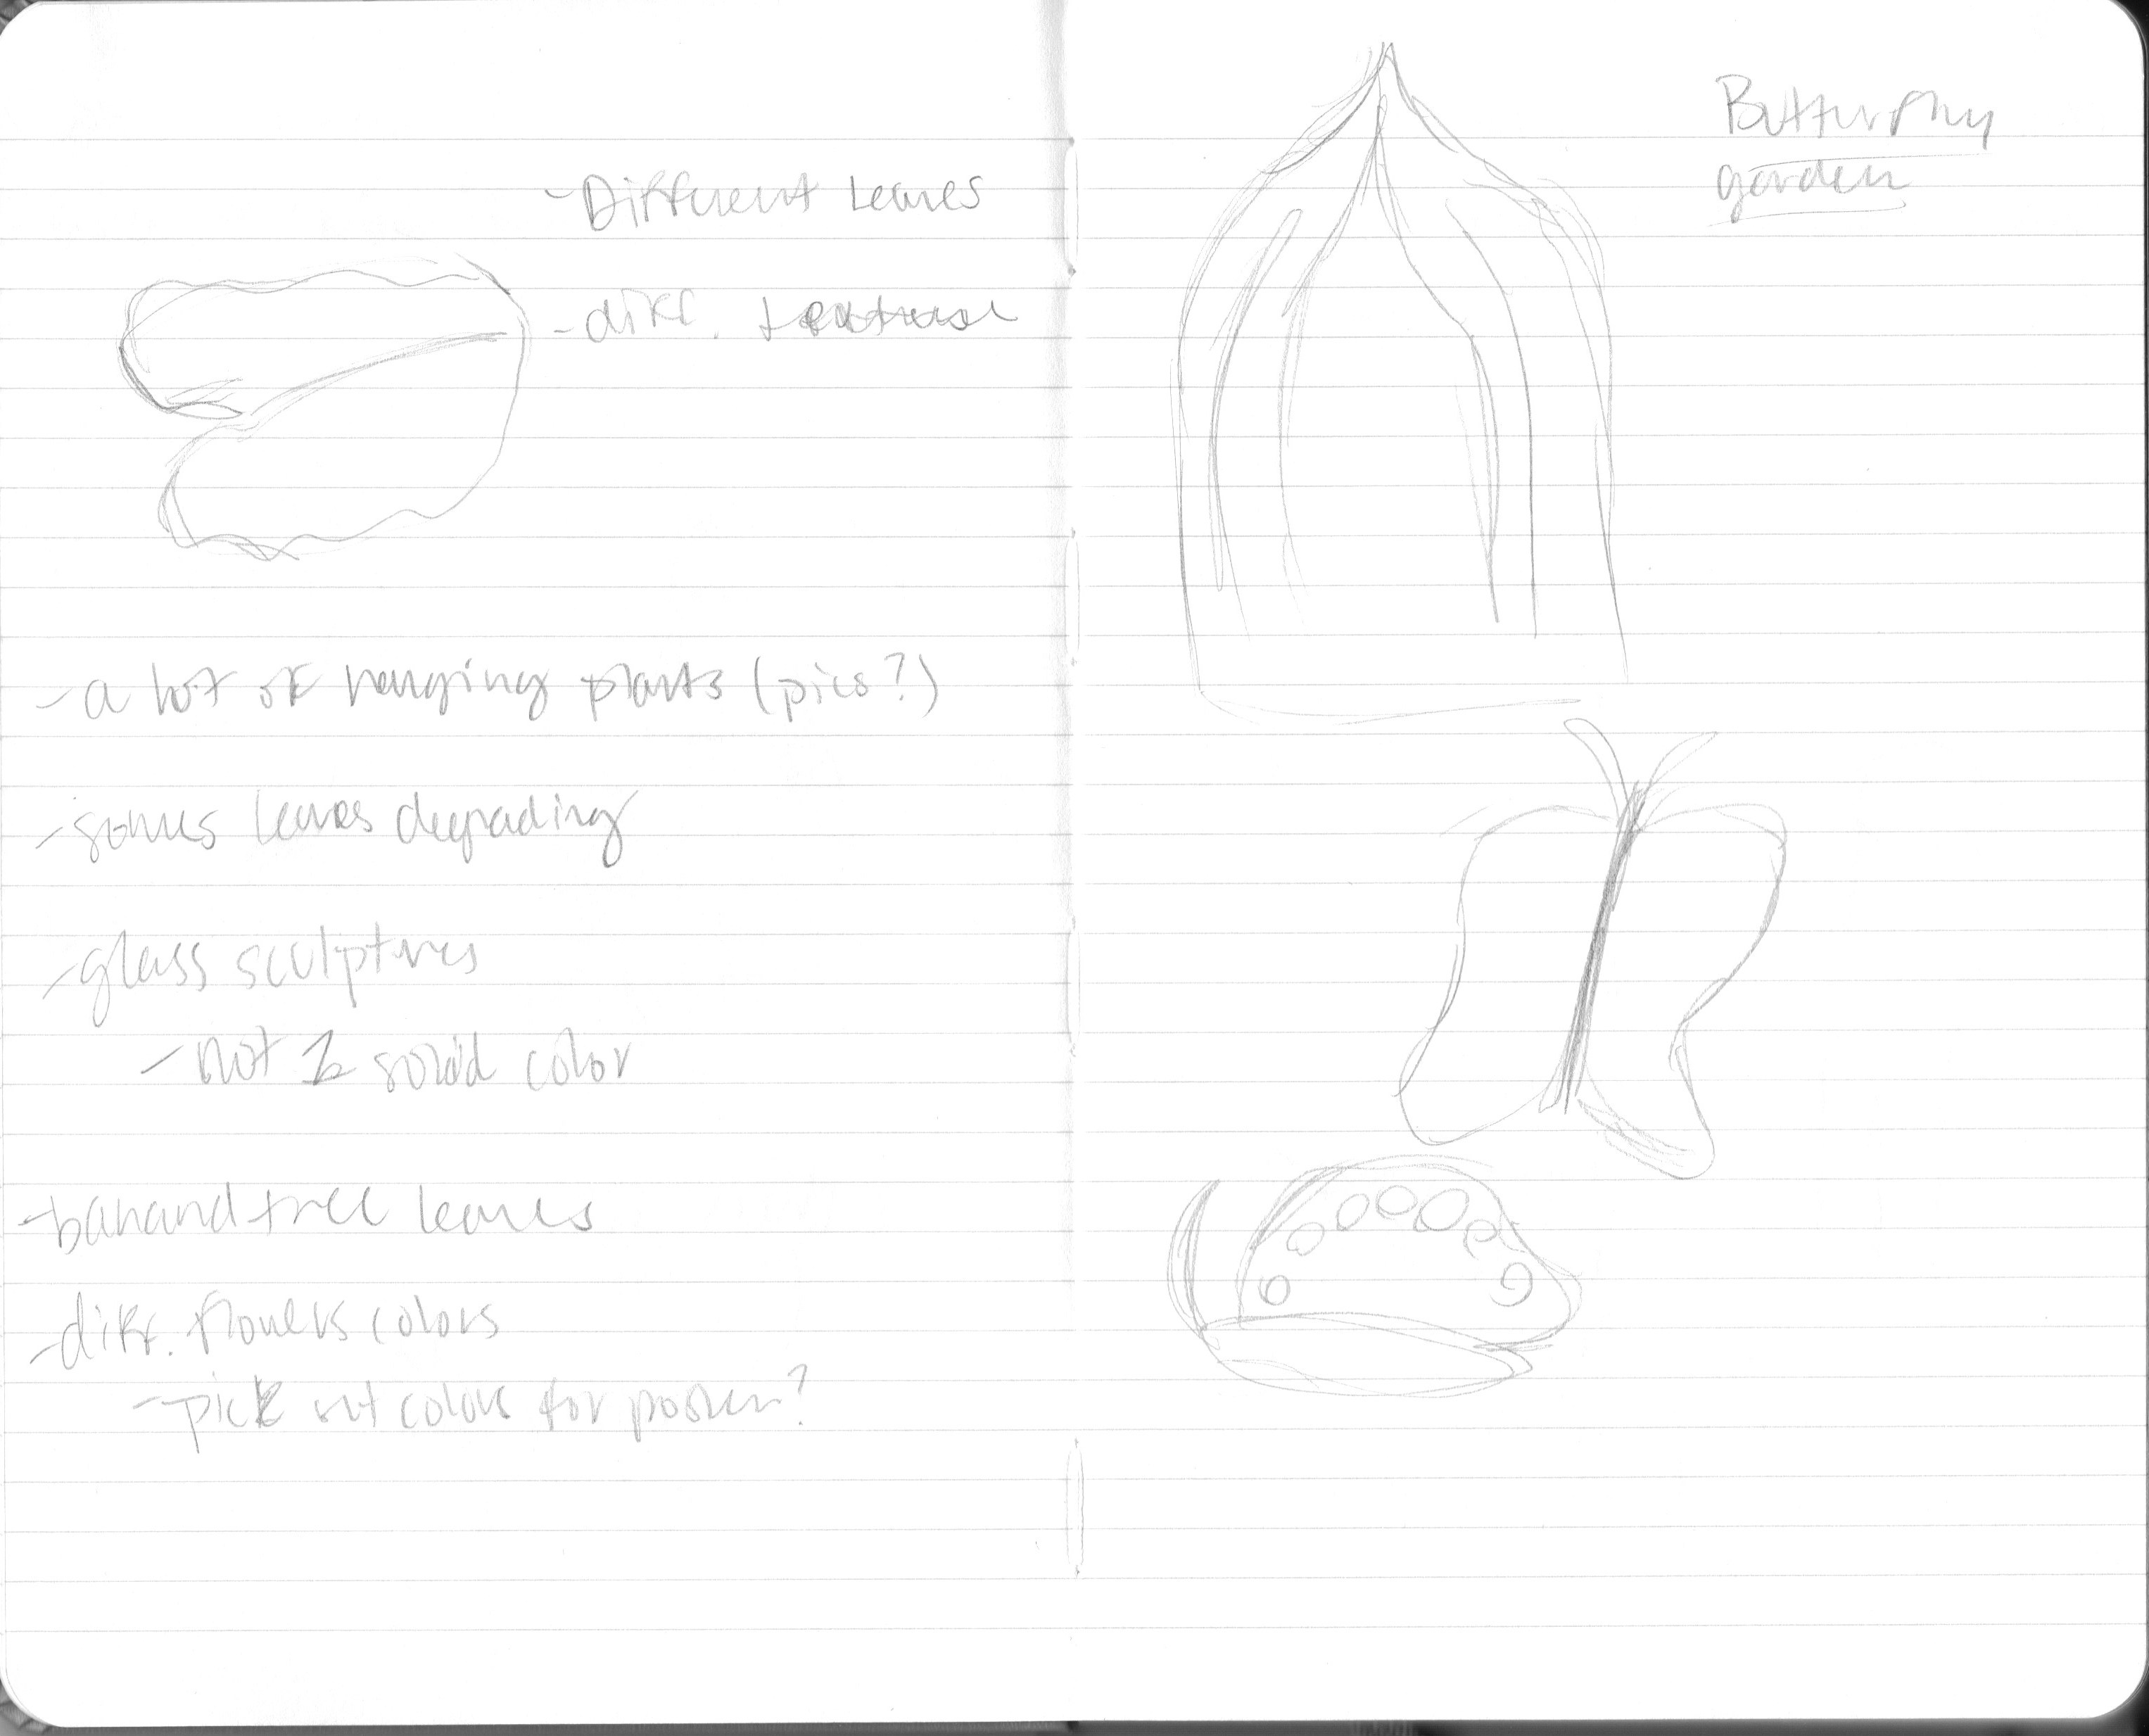 - Different Leaves
- diff. texture
- a lot of hanging plants (pics?)
- somes leaves degrading
- glass sculptures
- not 1 solid color
- banana tree leaves
- diff. flowers colors
- pick out colors for poster?
Butterfly
garden